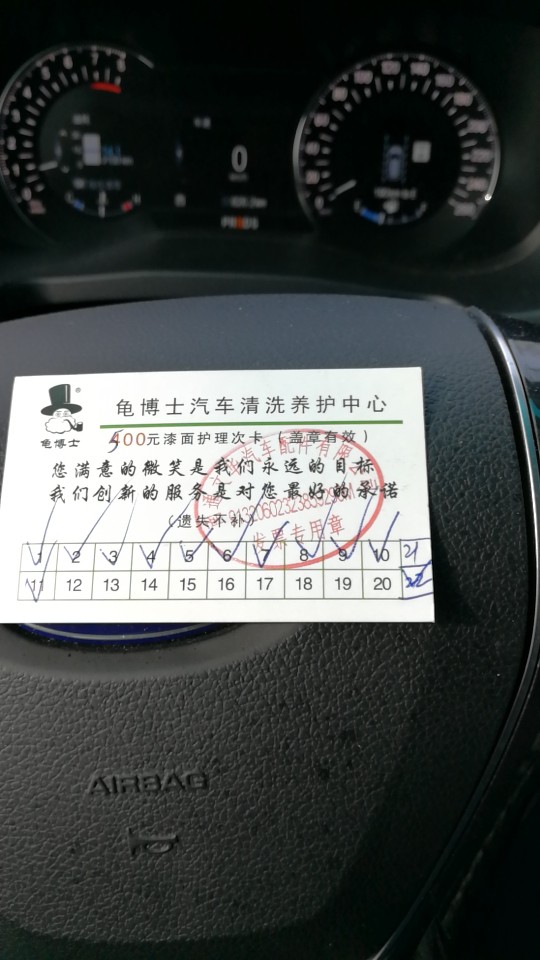 0
龟博士
®
龟博士汽车清洗养护中心
500元漆面护理次卡（盖章有效）
您满意的微笑是我们永远的目标
我们创新的服务是对您最好的承诺
（遗失不补）
发票专用章
1 2 3 4 5 6 7 8 9 10 21
11 12 13 14 15 16 17 18 19 20 22
AIRBAG